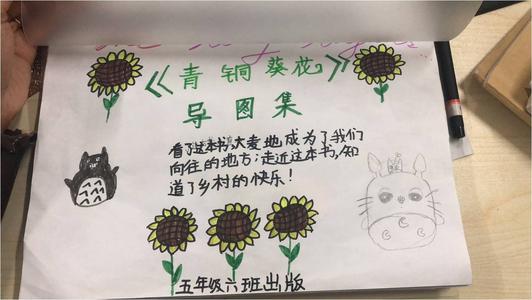 《青铜葵花》
导图集
看了这本书,大麦地成为了我们
向往的地方;走近这本书,知
道了乡村的快乐!
五年级六班出版